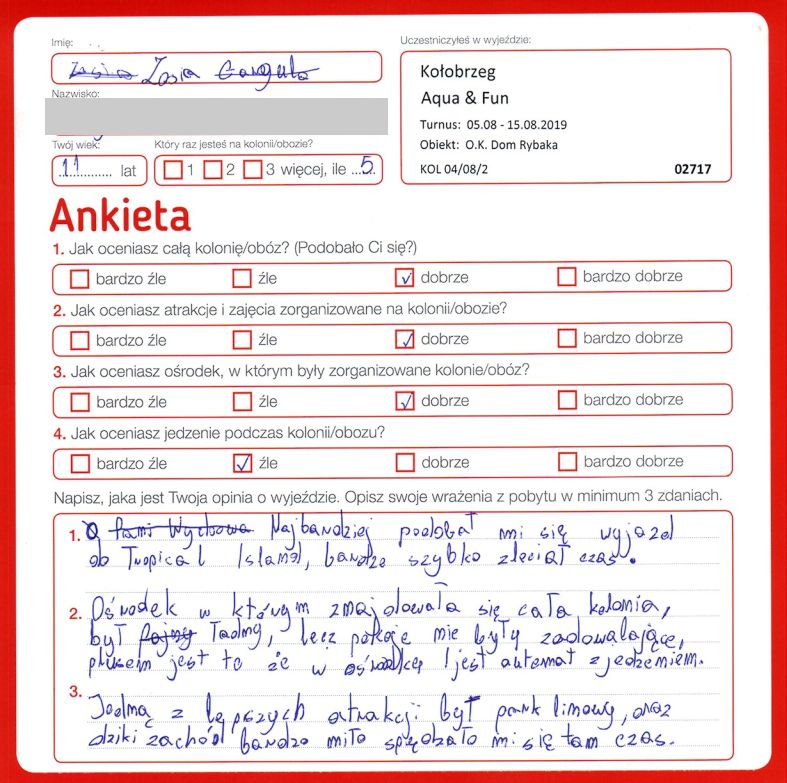 Imię:
Uczestniczyłeś w wyjeździe:
Zosia Zosia Gargula
Kołobrzeg
Aqua & Fun
Nazwisko:
Turnus: 05.08 - 15.08.2019
Obiekt: O.K. Dom Rybaka
KOL 04/08/2
02717
Twój wiek:
Który raz jesteś na kolonii/obozie?
11 lat
1 2 3 więcej, ile 5
Ankieta
1. Jak oceniasz całą kolonię/obóz? (Podobało Ci się?)
bardzo źle źle dobrze bardzo dobrze
2. Jak oceniasz atrakcje i zajęcia zorganizowane na kolonii/obozie?
bardzo źle źle dobrze bardzo dobrze
3. Jak oceniasz ośrodek, w którym były zorganizowane kolonie/obóz?
bardzo źle źle dobrze bardzo dobrze
4. Jak oceniasz jedzenie podczas kolonii/obozu?
bardzo źle źle dobrze bardzo dobrze
Napisz, jaka jest Twoja opinia o wyjeździe. Opisz swoje wrażenia z pobytu w minimum 3 zdaniach.
1. Najbardziej podobał mi się wyjazd
do Tropical Island, bardzo szybko zleciał czas.
2. Ośrodek w którym znajdowała się cała kolonia,
był fajny ładny, lecz pokoje nie były zadowalające,
plusem jest to że w ośrodku jest automat z jedzeniem.
3. Jedną z lepszych atrakcji był park linowy, oraz
dziki zachód bardzo miło spędzało mi się tam czas.